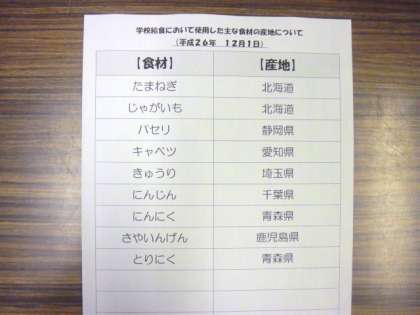 学校給食において使用した主な食材の産地について
（平成２６年　１２月１日）
【食材】 【産地】
たまねぎ 北海道
じゃがいも 北海道
パセリ 静岡県
キャベツ 愛知県
きゅうり 埼玉県
にんじん 千葉県
にんにく 青森県
さやいんげん 鹿児島県
とりにく 青森県